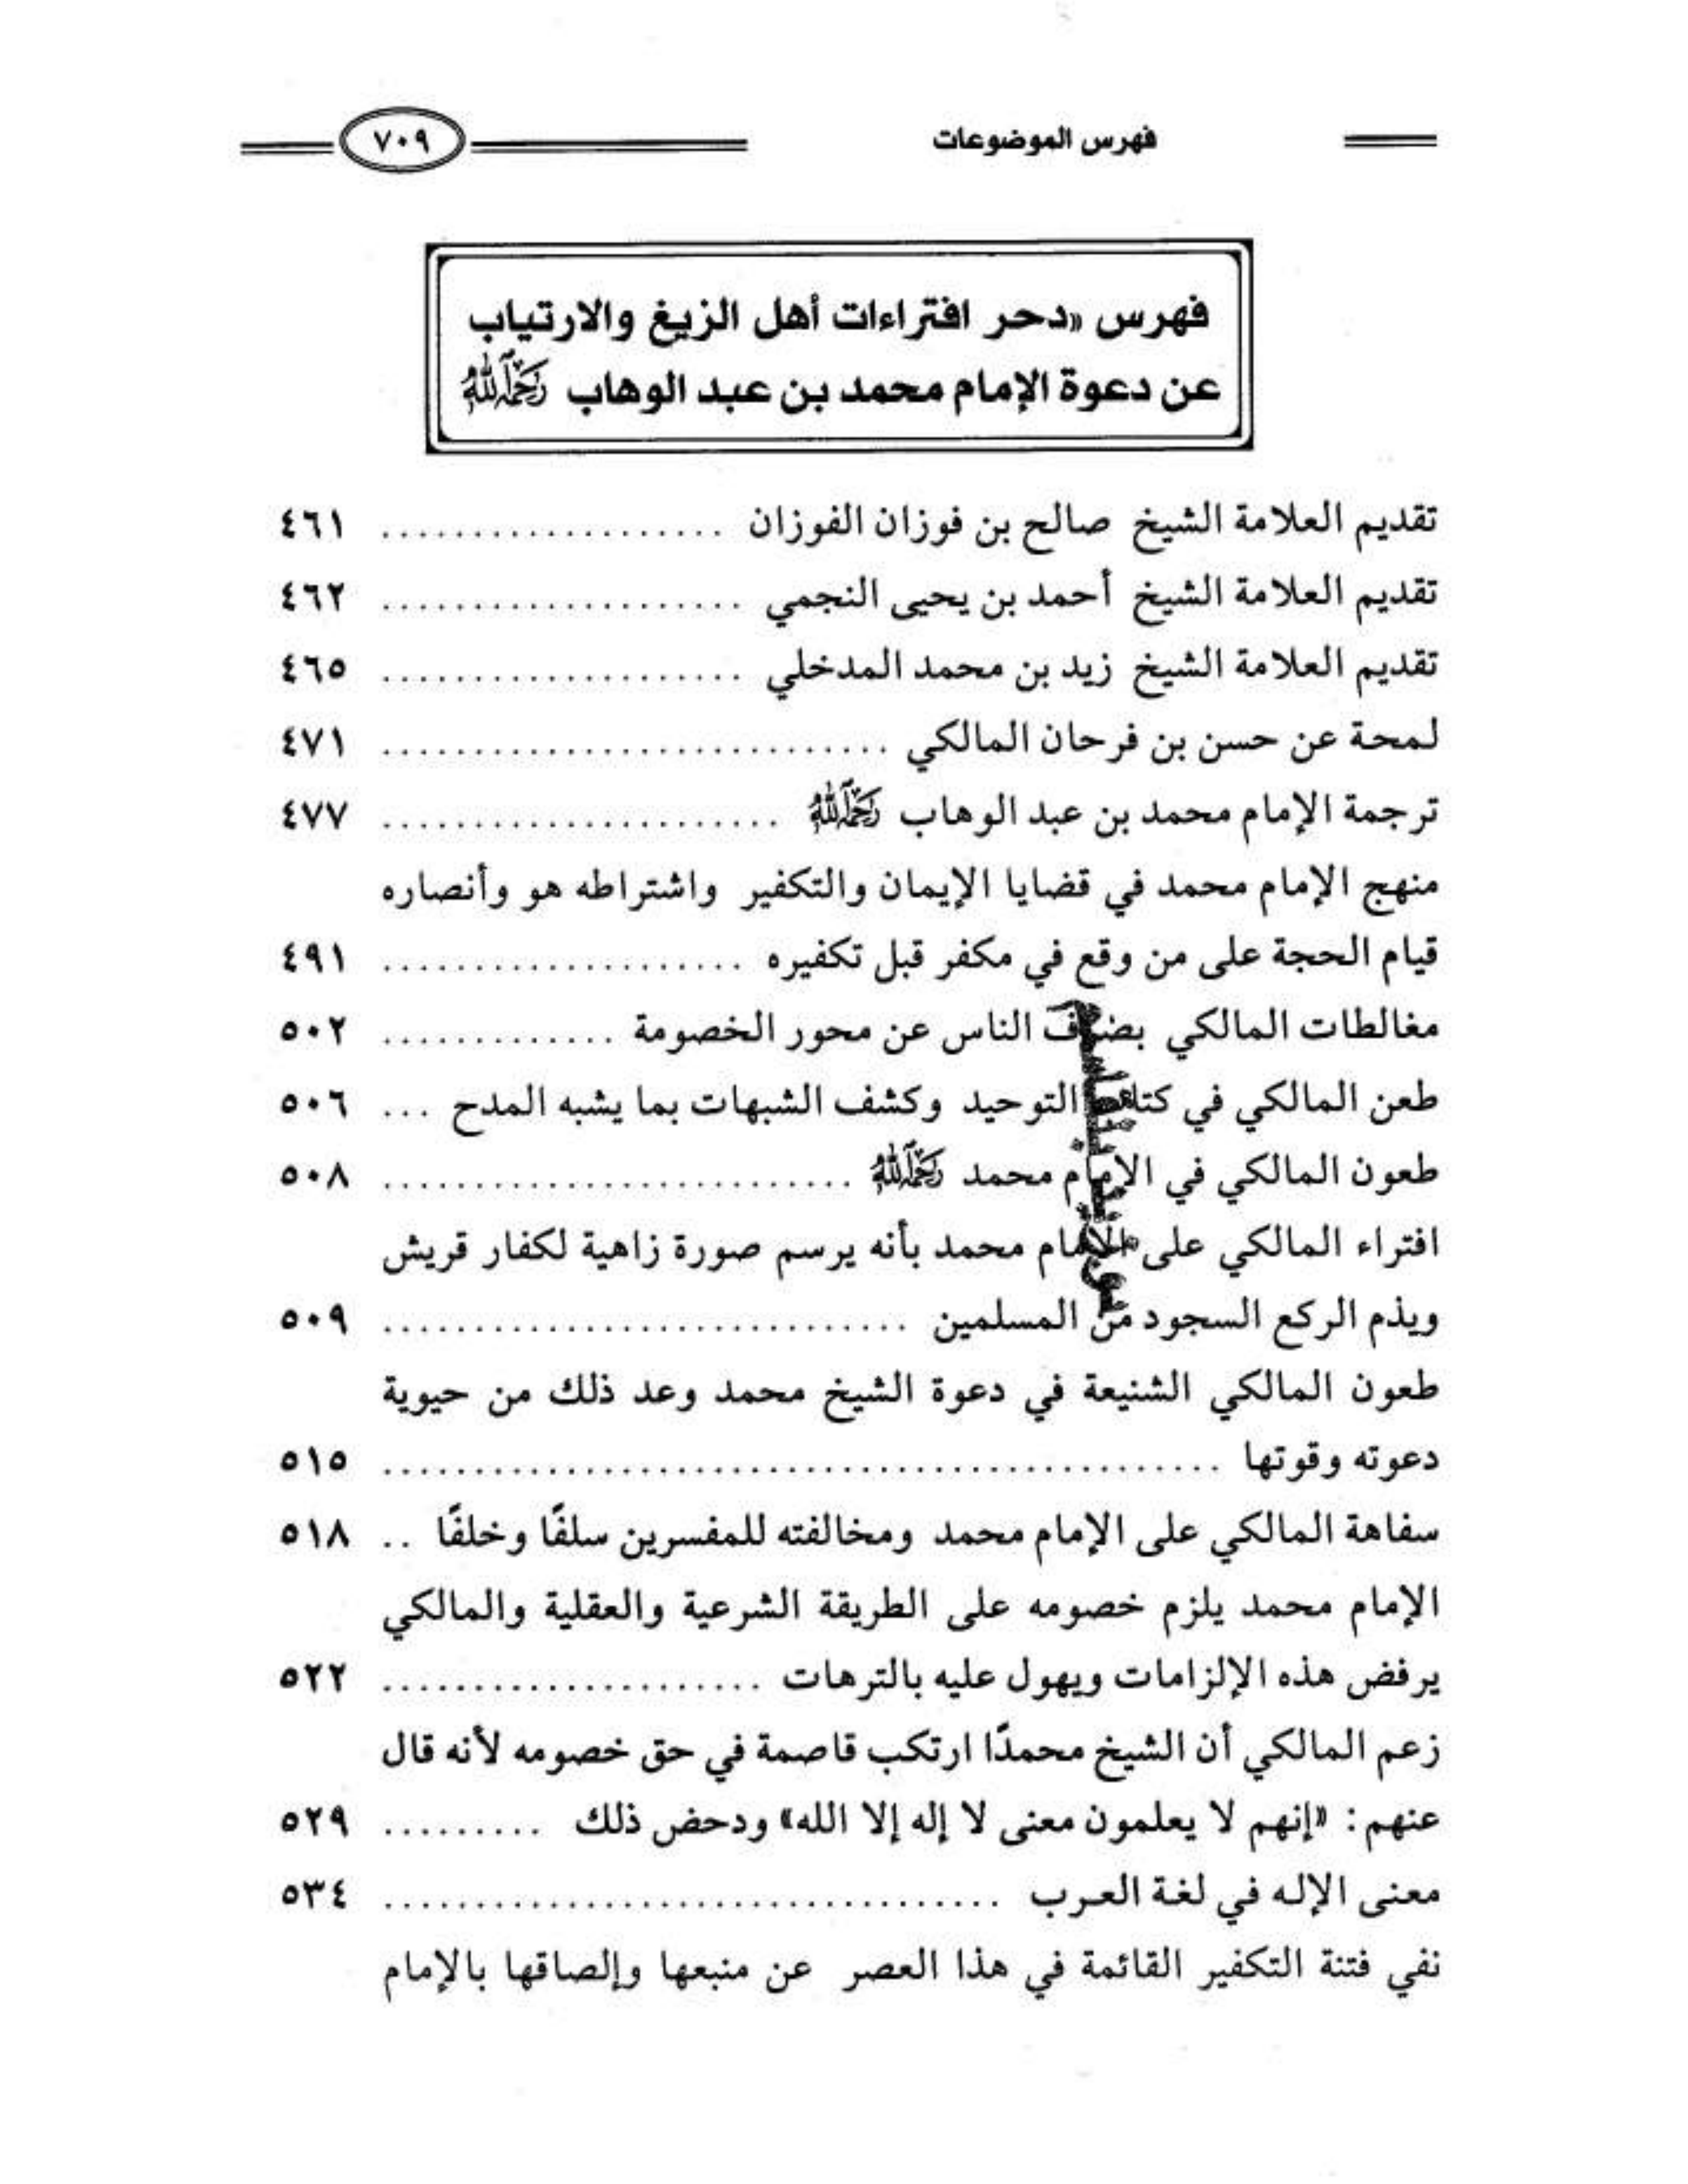 فهرس الموضوعات ٧٠٩
فهرس «دحر افتراءات أهل الزيغ والارتياب
عن دعوة الإمام محمد بن عبد الوهاب رحمه الله
تقديم العلامة الشيخ صالح بن فوزان الفوزان ................... ٤٦١
تقديم العلامة الشيخ أحمد بن يحيى النجمي .................... ٤٦٢
تقديم العلامة الشيخ زيد بن محمد المدخلي .................... ٤٦٥
لمحة عن حسن بن فرحان المالكي ............................ ٤٧١
ترجمة الإمام محمد بن عبد الوهاب رحمه الله ...................... ٤٧٧
منهج الإمام محمد في قضايا الإيمان والتكفير واشتراطه هو وأنصاره
قيام الحجة على من وقع في مكفر قبل تكفيره .................... ٤٩١
مغالطات المالكي الناس عن محور الخصومة ............. ٥٠٢
طعن المالكي في كتاب التوحيد وكشف الشبهات بما يشبه المدح ... ٥٠٦
طعون المالكي في الإمام محمد رحمه الله .......................... ٥٠٨
افتراء المالكي على الإمام محمد بأنه يرسم صورة زاهية لكفار قريش
ويذم الركع السجود من المسلمين ............................. ٥٠٩
طعون المالكي الشنيعة في دعوة الشيخ محمد وعد ذلك من حيوية
دعوته وقوتها .............................................. ٥١٥
سفاهة المالكي على الإمام محمد ومخالفته للمفسرين سلفًا وخلفًا .. ٥١٨
الإمام محمد يلزم خصومه على الطريقة الشرعية والعقلية والمالكي
يرفض هذه الإلزامات ويهول عليه بالترهات ..................... ٥٢٢
زعم المالكي أن الشيخ محمدًا ارتكب قاصمة في حق خصومه لأنه قال
عنهم: «إنهم لا يعلمون معنى لا إله إلا الله» ودحض ذلك ......... ٥٢٩
معنى الإله في لغة العرب .................................. ٥٣٤
نفي فتنة التكفير القائمة في هذا العصر عن منبعها وإلصاقها بالإمام